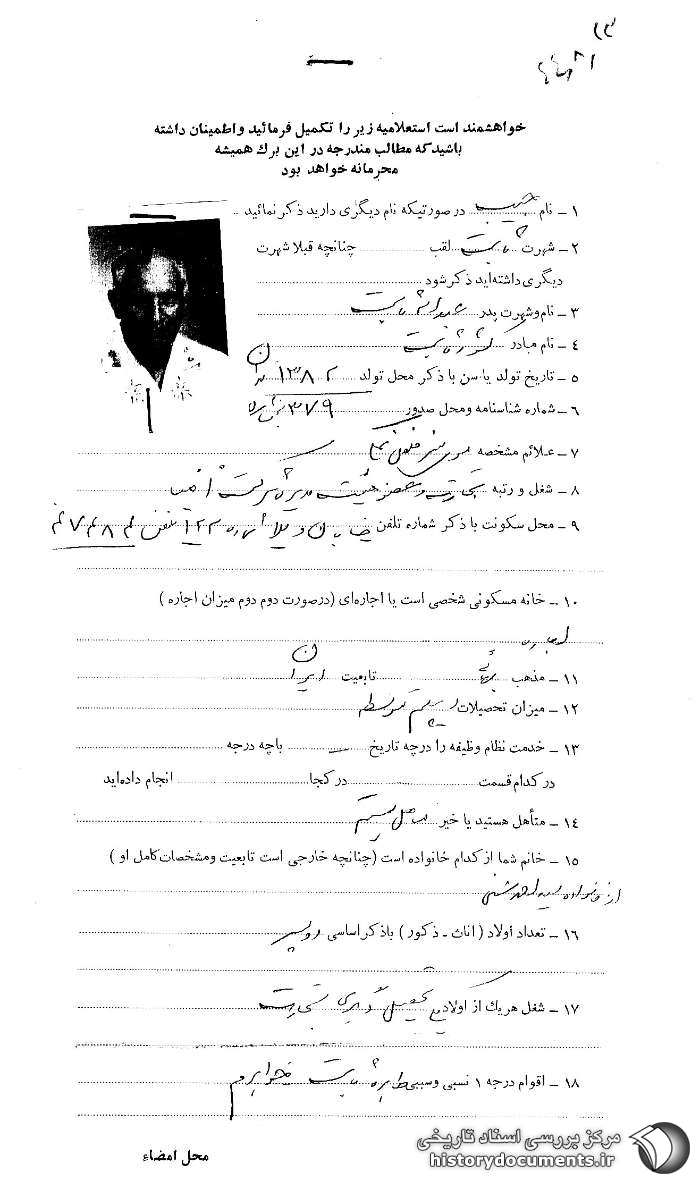 خواهشمند است استعلامیه زیر را تکمیل فرمائید و اطمینان داشته
باشید که مطالب مندرجه در این برگ همیشه
محرمانه خواهد بود
۱ - نام حبیب در صورتیکه نام دیگری دارید ذکر نمائید
۲ - شهرت ثابت لقب چنانچه قبلا شهرت
دیگری داشته‌اید ذکر شود
۳ - نام و شهرت پدر عبداله ثابت
۴ - نام مادر کشور ثابت
۵ - تاریخ تولد یا سن با ذکر محل تولد
۶ - شماره شناسنامه و محل صدور ۳۷۹
۷ - علائم مشخصه
۸ - شغل و رتبه تجارت و عضو هیئت مدیره شرکت
۹ - محل سکونت با ذکر شماره تلفن خیابان ویلا شماره ۱۲۲ تلفن
۱۰ - خانه مسکونی شخصی است یا اجاره‌ای (درصورت دوم دوم میزان اجاره)
اجاره
۱۱ - مذهب بهائی تابعیت ایران
۱۲ - میزان تحصیلات دیپلم متوسطه
۱۳ - خدمت نظام وظیفه را درچه تاریخ باچه درجه
در کدام قسمت در کجا انجام داده‌اید
۱۴ - متأهل هستید یا خیر متاهل هستم
۱۵ - خانم شما از کدام خانواده است (چنانچه خارجی است تابعیت ومشخصات کامل او)
از خانواده
۱۶ - تعداد أولاد (اناث - ذکور) باذکر اساسی دو پسر
۱۷ - شغل هریك از اولاد یکی تحصیل دیگری تجارت
۱۸ - اقوام درجه ۱ نسبی وسببی طاهره ثابت خواهرم
محل امضاء
مرکز بررسی اسناد تاریخی
historydocuments.ir